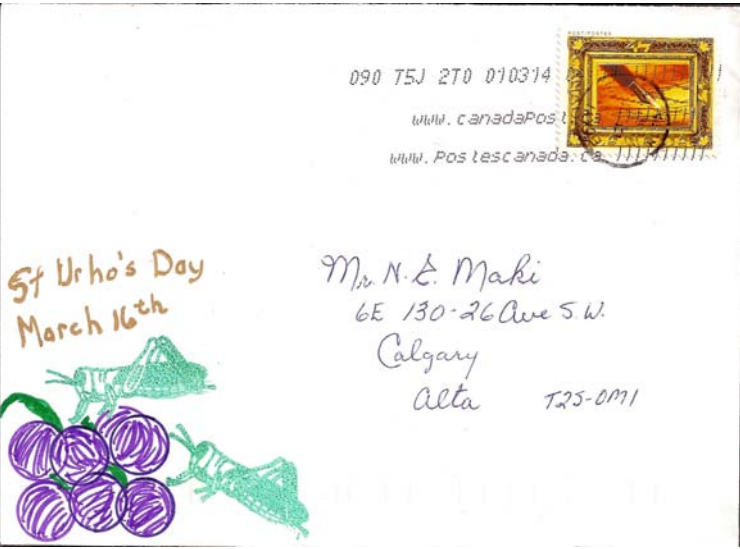 POST/POSTES
47
090 T5J 2T0 010314
www.canadaPost.ca
www.Postescanada.ca
St Urho's Day
March 16th
Mr. N. E. Maki
6E 130-26 Ave S.W.
Calgary
Alta T2S-0M1